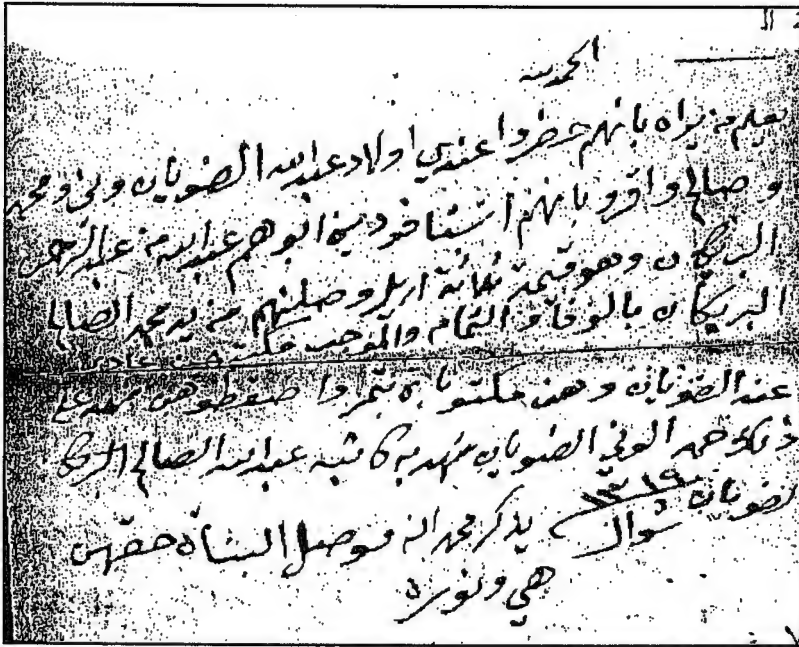 الحمد لله
يعلم من يراه بانهم حضروا عندي اولاد عبدالله الضويان وني ومحمد
وصالح واقرو بانهم استافو دين ابوهم عبدالله من عبدالرحمن
البريكان وهو قيمة ثمانة اريل وصلتهم من يد محمد الصالح
البريكان بالوفا والتمام والموجب مكتو
عند الضويان وهن مكتوبا شهد على
ذلك حمد الوني الضويان شهد به كاتبه عبدالله الصالح البريكا
لضويان شوال ١٣١٩ يذكر محمد انه موصل البناة حقهن
هي ونوره